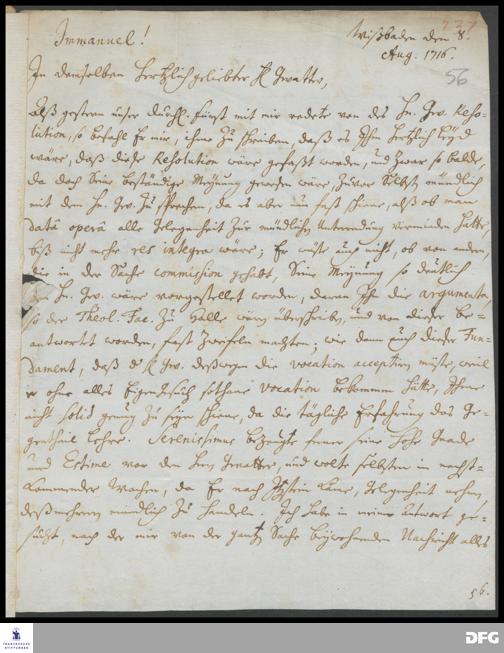 237
Immanuel!
Wißbaden den 8.
Aug. 1716.
56
In demselben Hertzlich geliebter H. Gevatter,
Alß gestern unser Fürst mit mir redete von des Hn. Gev. Reso-
lution, so befahl Er mir, ihme zu schreiben, daß es Ihm hertzlich leyd
wäre, daß diese Resolution wäre gefaßt worden, und zwar so balde,
da doch Seine beständige Meynung gewesen wäre, zuvor Selbst mündlich
mit dem Hn. Gev. zu sprechen, da es aber nun fast schiene, alß ob man
datâ operâ alle Gelegenheit zur mündlichen Unterredung vermieden hätte,
biß nicht mehr res integra wäre; Er wüste auch nicht, ob von andern,
die in der Sache commission gehabt, Seine Meynung so deutlich
Hn. Gev. wäre vorgestellet worden, daran Ihn die argumenta,
so der Theol. Fac. zu Halle überschrieben, und von dieser be-
antwortet worden, fast zweifeln machten; wie dann auch dieser Fun-
dament, daß d. H. Gev. deßwegen die vocation acceptiren müste, weil
er ohne alles Eigengesuch sothane vocation bekommen hätte, Ihme
nicht solid genug zu seyn schiene, da die tägliche Erfahrung das Ge-
gentheil lehre. Serenissimus bezeugte ferner seine hohe Gnade
und Estime vor den Hn. Gevatter, und wolte selbsten in nechst-
kommender Wochen, da Er nach Idstein käme, Gelegenheit nehmen,
deßwegen mündlich zu handeln. Ich habe in meiner Antwort ge-
sucht, nach der mir von der gantzen Sache beywohnenden Nachricht alles
56.
FRANCKESCHE
STIFTUNGEN
DFG